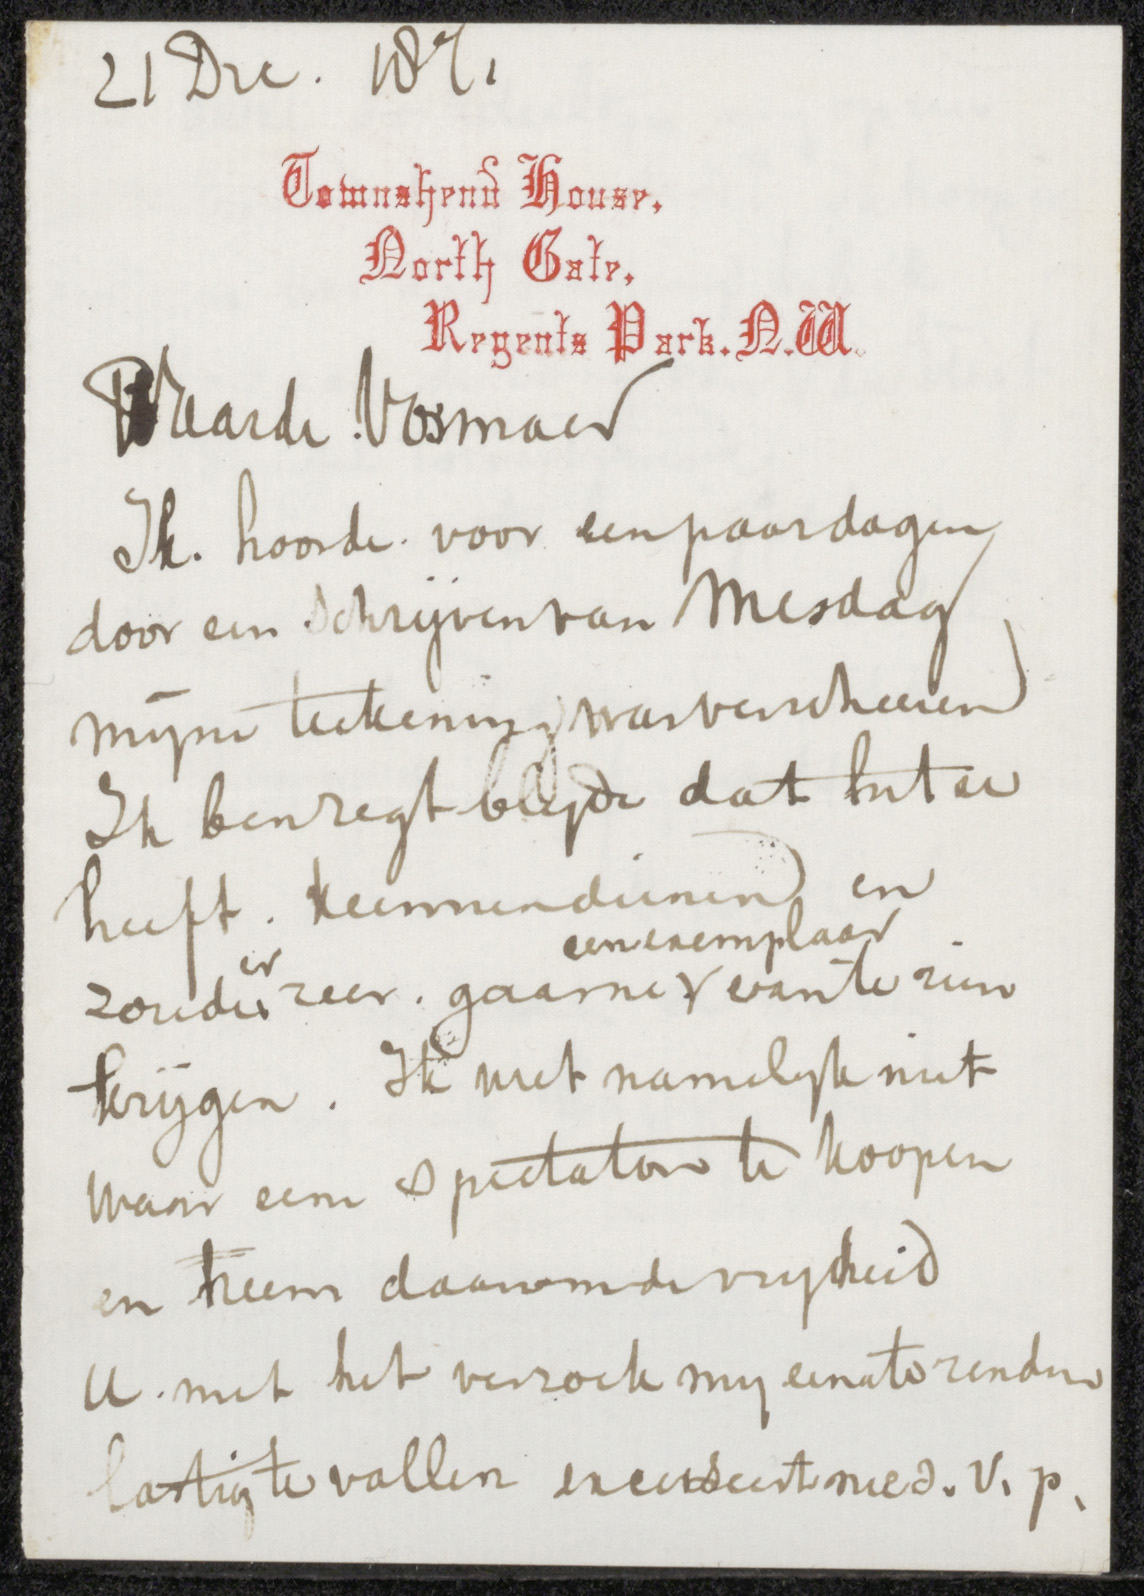 21 Dec. 187,
Townshend House,
North Gate,
Regents Park. N.W.
Waarde Vosmaer
Ik hoorde voor een paar dagen
door een schrijven van Mesdag
mijne teekening was verscheenen
Ik ben regt blijde dat het er
heeft kunnen dienen en
zoude er zeer gaarne een exemplaar van te zien
krijgen. Ik weet namelijk niet
waar een spectator te koopen
en neem daarom de vryheid
U met het verzoek my een te zenden
lastig te vallen excuseert me s.v.p.